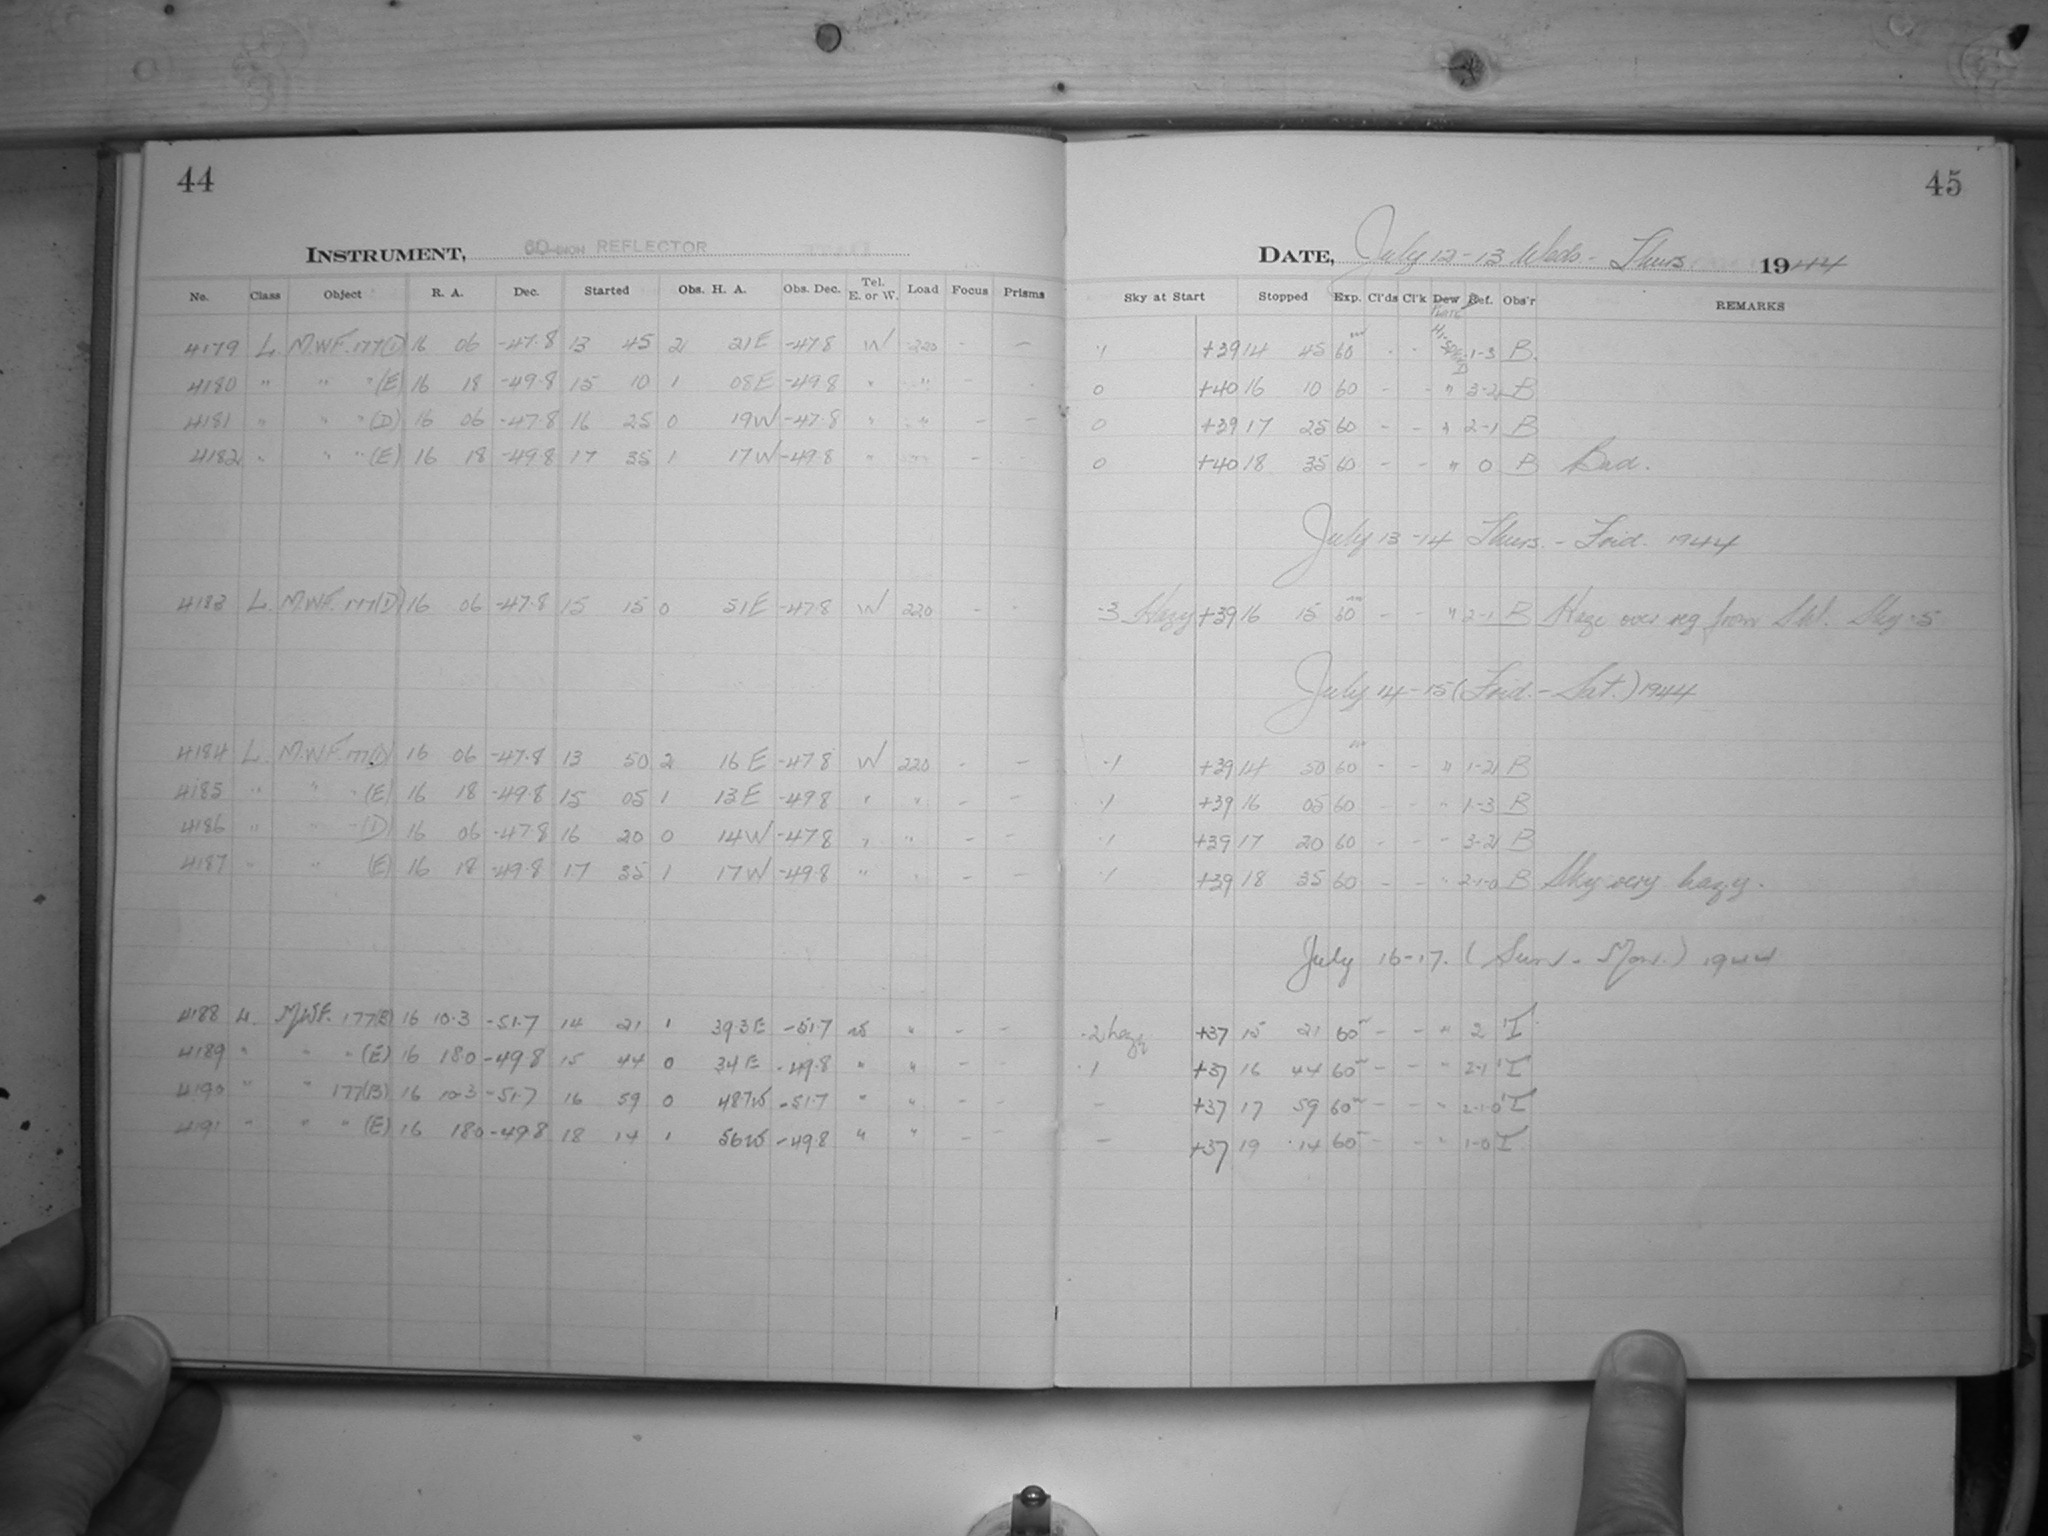 44
INSTRUMENT, 60-INCH REFLECTOR
No. Class Object R. A. Dec. Started Obs. H. A. Obs. Dec. Tel. E. or W. Load Focus Prisms
4179 L. M.W.F. 177(D) 16 06 -47.8 13 45 2 21E -47.8 W 220 - -
4180 " " "(E) 16 18 -49.8 15 10 1 08E -49.8 " " - -
4181 " " "(D) 16 06 -47.8 16 25 0 19W -47.8 " " - -
4182 " " "(E) 16 18 -49.8 17 35 1 17W -49.8 " " - -
4183 L. M.W.F. 177(D) 16 06 -47.8 15 15 0 51E -47.8 W 220 - -
4184 L M.W.F. 177(D) 16 06 -47.8 13 50 2 16E -47.8 W 220 - -
4185 " " "(E) 16 18 -49.8 15 05 1 13E -49.8 " " - -
4186 " " "(D) 16 06 -47.8 16 20 0 14W -47.8 " " - -
4187 " " (E) 16 18 -49.8 17 35 1 17W -49.8 " " - -
4188 L. M.W.F. 177(B) 16 10.3 -51.7 14 21 1 39.3E -51.7 W " - -
4189 " " "(E) 16 18.0 -49.8 15 44 0 34E -49.8 " " - -
4190 " " 177(B) 16 10.3 -51.7 16 59 0 48.7W -51.7 " " - -
4191 " " "(E) 16 18.0 -49.8 18 14 1 56W -49.8 " " - -
45
DATE, July 12-13 Weds - Thurs 1944
Sky at Start Stopped Exp. Cl'ds Cl'k Dew Def. Obs'r REMARKS
PLATE
.1 +39 14 45 60m - - HI-SPEED 1-3 B.
0 +40 16 10 60 - - " 3-2 B
0 +39 17 25 60 - - " 2-1 B
0 +40 18 35 60 - - " 0 B Bad.
July 13-14 Thurs. - Frid. 1944
.3 Hazy +39 16 15 60m - - " 2-1 B Haze over reg from SW. Sky .5
July 14-15 (Frid. - Sat.) 1944
.1 +39 14 50 60m - - " 1-2 B
.1 +39 16 05 60 - - " 1-3 B
.1 +39 17 20 60 - - " 3-2 B
.1 +39 18 35 60 - - " 2-1-0 B Sky very hazy.
July 16-17. (Sun. - Mon.) 1944
.2 hazy +37 15 21 60m - - " 2 I
.1 +37 16 44 60m - - " 2-1 I
- +37 17 59 60m - - " 2-1-0 I
- +37 19 14 60m - - " 1-0 I